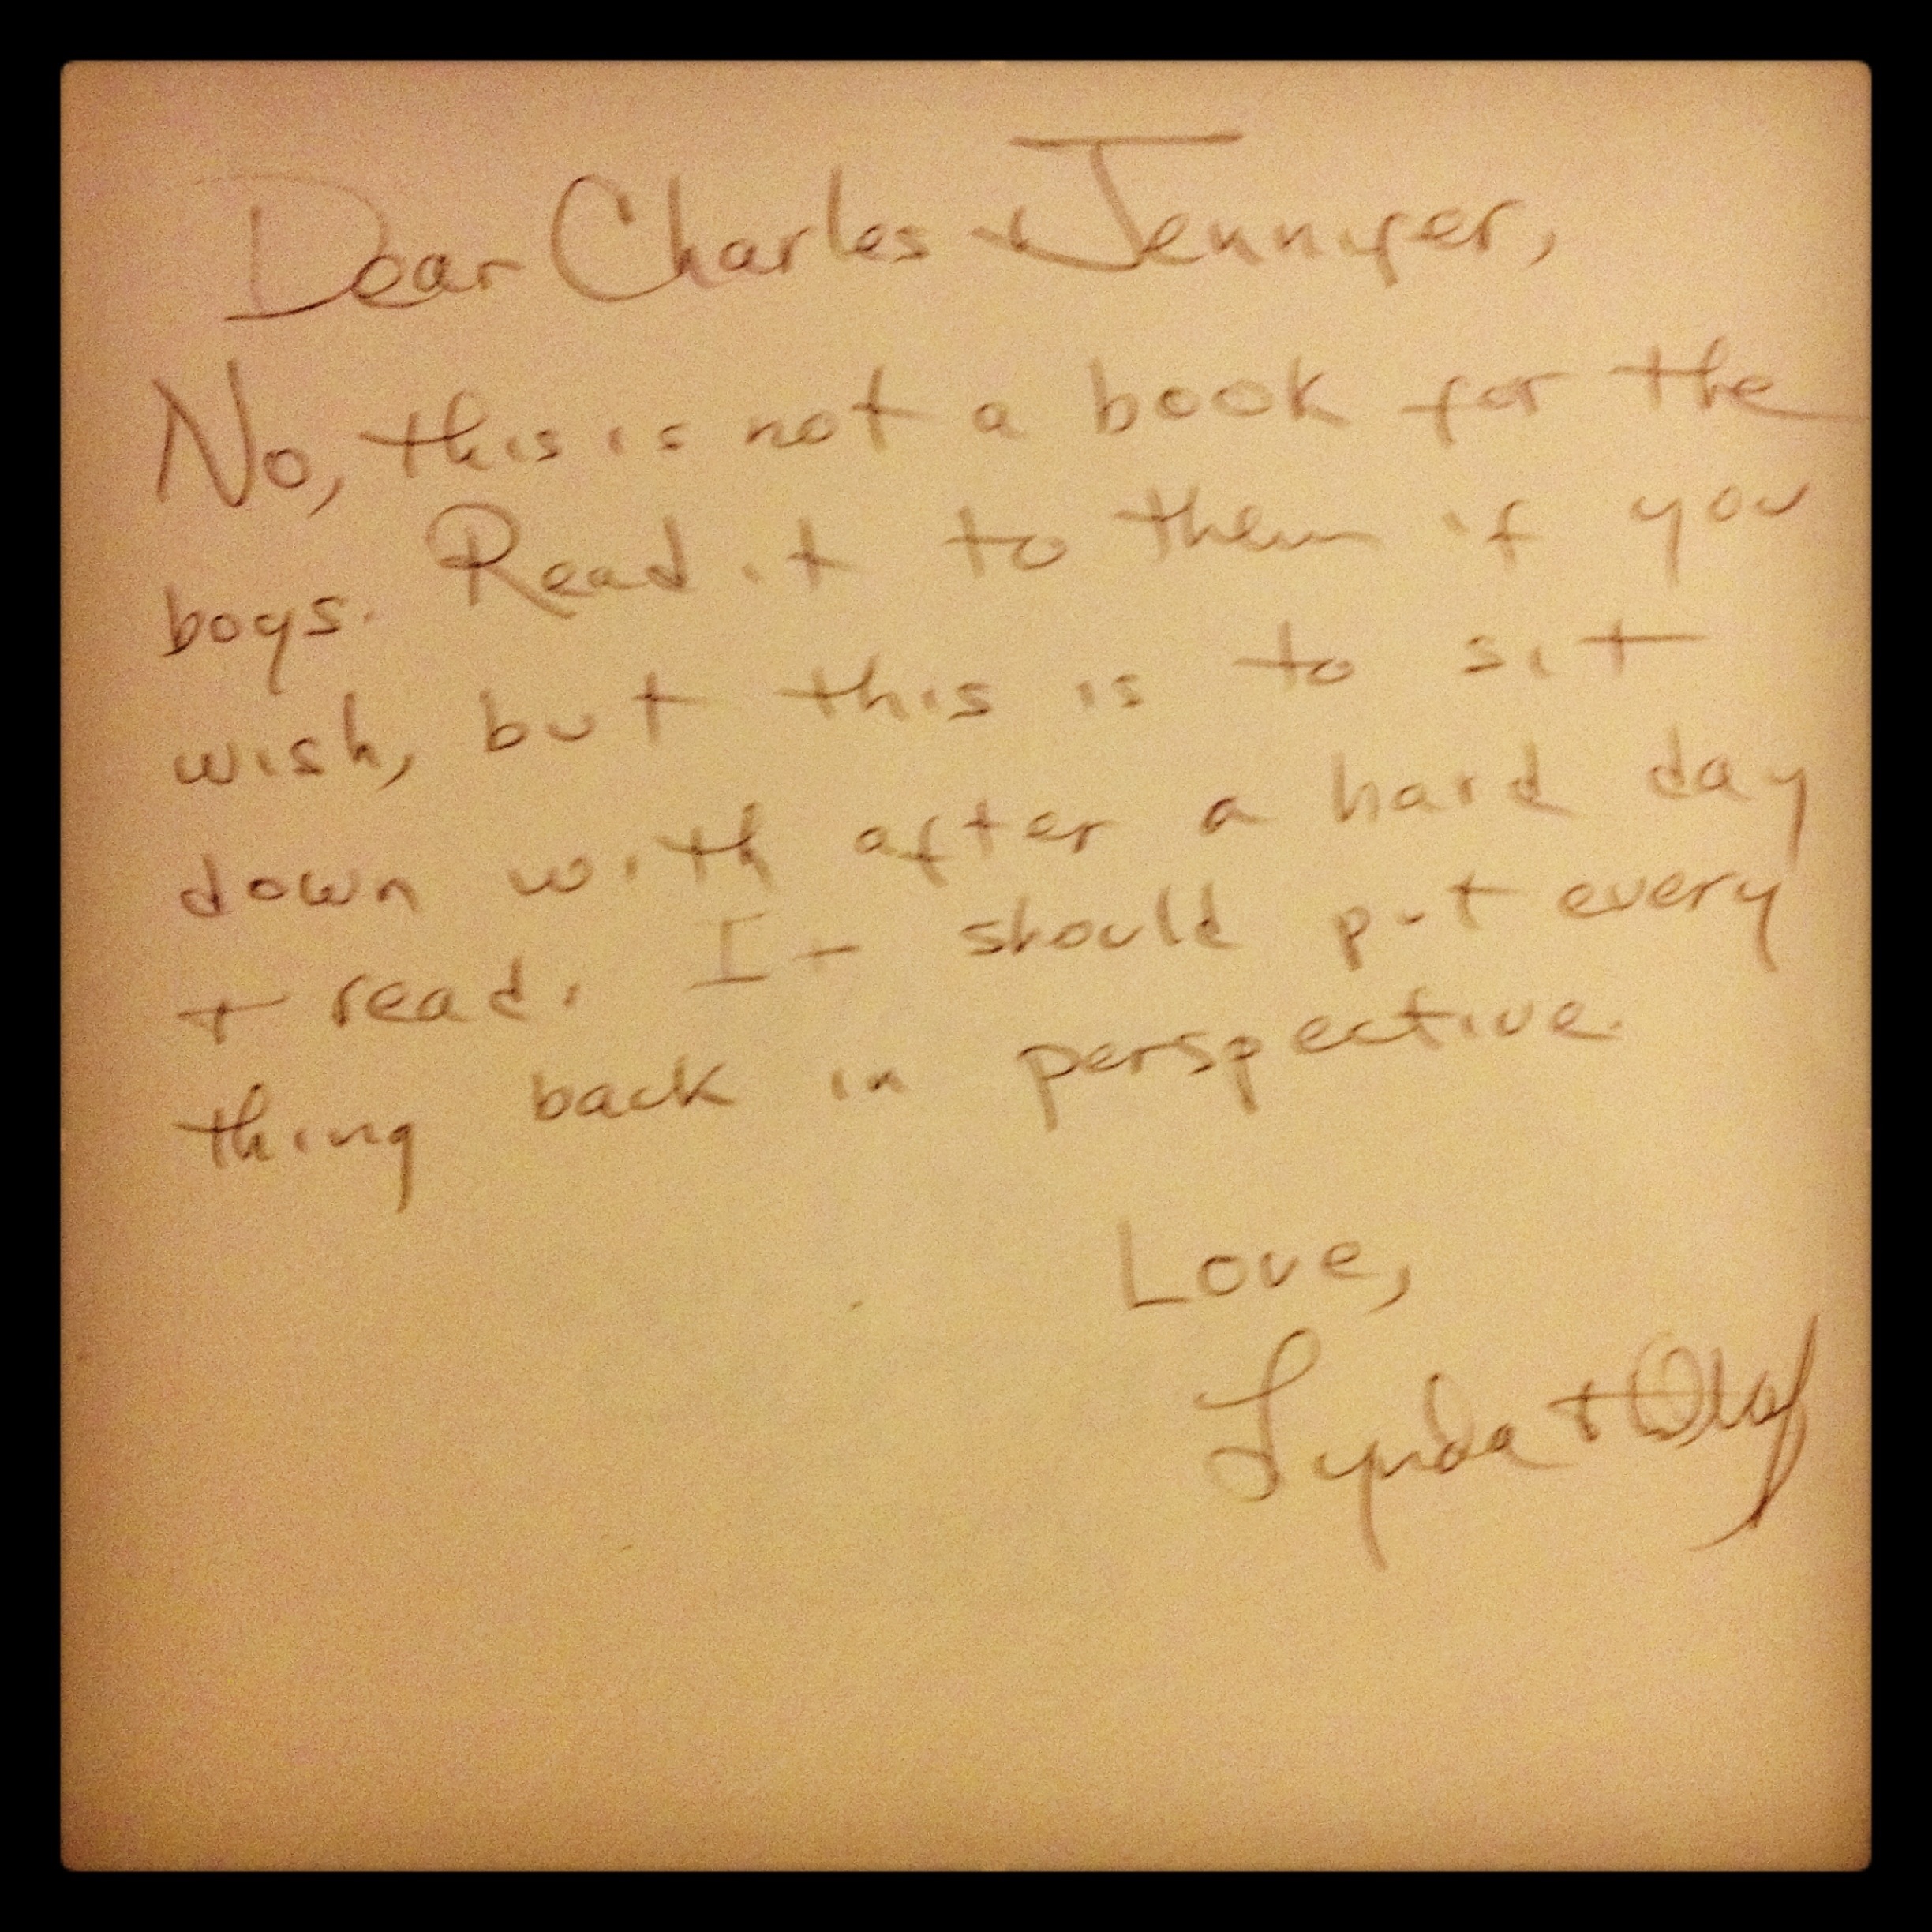 Dear Charles + Jennifer,
No, this is not a book for the
boys. Read it to them if you
wish, but this is to sit
down with after a hard day
+ read. It should put every
thing back in perspective.
Love,
Lynda + Olaf